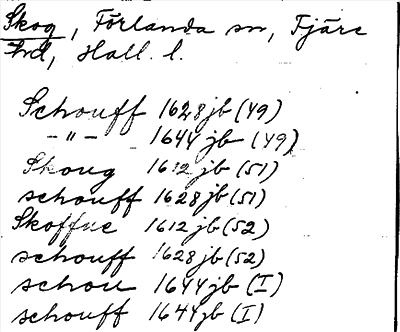 Skog, Förlanda sn, Fjäre
hd, Hall. l.
Schouff 1628 jb (49)
- " - 1644 jb (49)
Skoug 1612 jb (51)
schouff 1628 jb (51)
Skoffue 1612 jb (52)
schouff 1628 jb (52)
schou 1644 jb (I)
schouff 1644 jb (I)